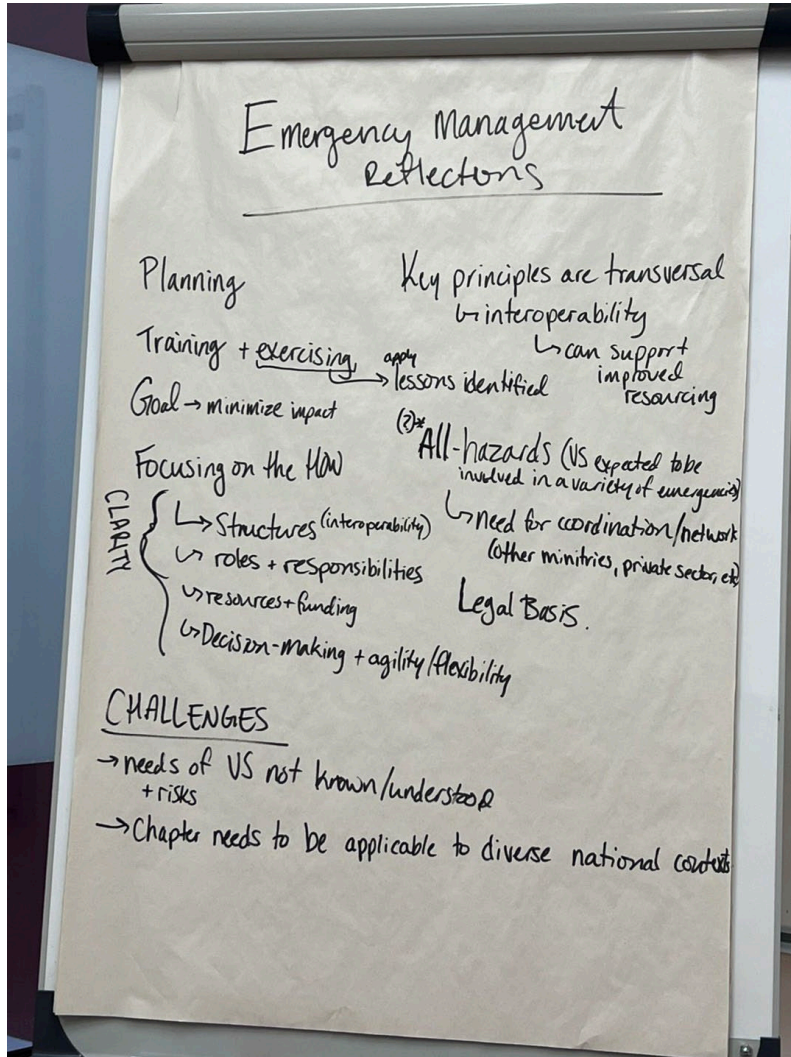 Emergency Management
Reflectons
Planning
Training + exercising
apply
→ lessons identified
Goal → minimize impact
Focusing on the HOW
CLARITY
↳ Structures (interoperability)
↳ roles + responsibilities
↳ resources + funding
↳ Decision-making + agility/flexibility
Key principles are transversal
↳ interoperability
↳ can support
improved
resourcing
(?)*
All-hazards (VS expected to be
involved in a variety of emergencies)
↳ need for coordination/network
(other minitries, private sector, etc)
Legal Basis.
CHALLENGES
→ needs of VS not known/understood
+ risks
→ Chapter needs to be applicable to diverse national contexts